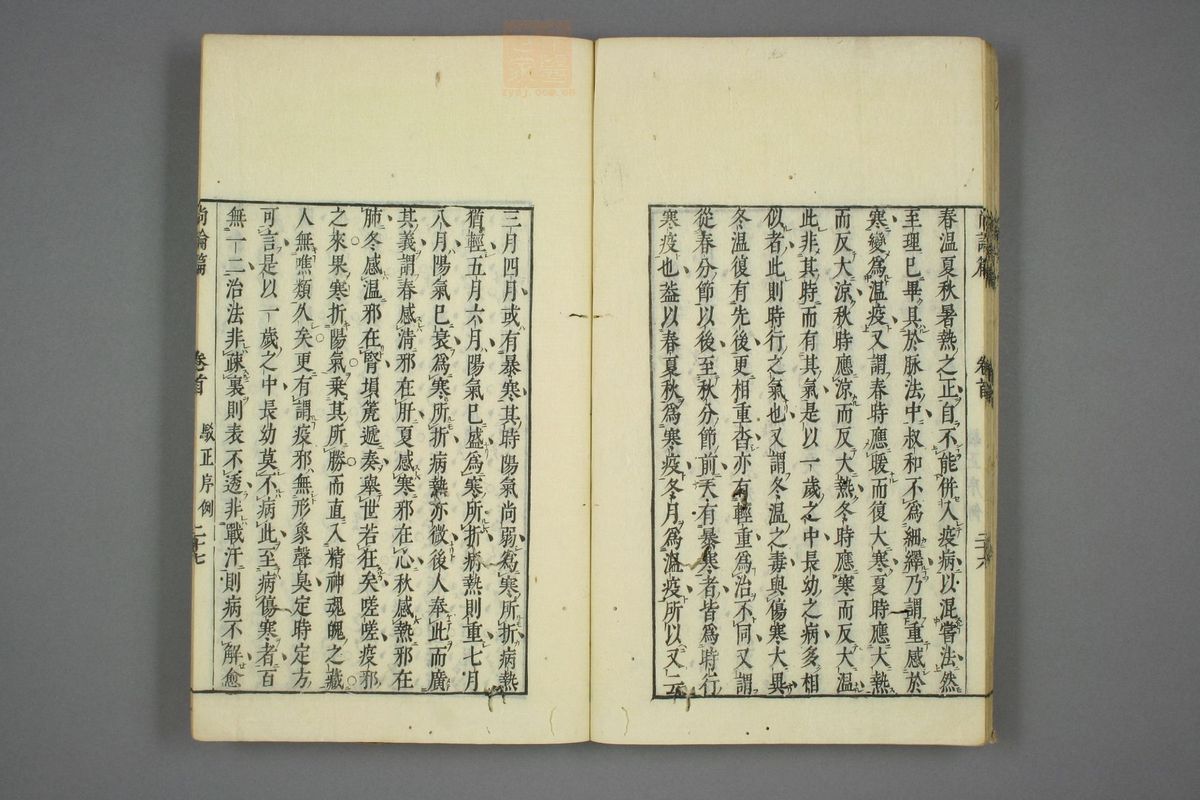 尚論篇 卷首 二十六
春溫夏秋暑熱之正自不能併入疫病以混嘗法然
至理已畢具於脉法中叔和不爲細繹乃謂重感於
寒變爲溫疫又謂春時應暖而復大寒夏時應大熱
而反大涼秋時應涼而反大熱冬時應寒而反大溫
此非其時而有其氣是以一歲之中長幼之病多相
似者此則時行之氣也又謂冬溫之毒與傷寒大異
冬溫復有先後更相重沓亦有輕重爲治不同又謂
從春分節以後至秋分節前天有暴寒者皆爲時行
寒疫也蓋以春夏秋爲寒疫冬月爲溫疫所以又云
三月四月或有暴寒其時陽氣尚弱爲寒所折病熱
猶輕五月六月陽氣已盛爲寒所折病熱則重七月
八月陽氣已衰爲寒所折病熱亦微後人奉此而廣
其義謂春感清邪在肝夏感寒邪在心秋感熱邪在
肺冬感溫邪在腎塤箎遞奏舉世若狂矣嗟嗟疫邪
之來果寒折陽氣乗其所勝而直入精神魂魄之藏
人無噍類久矣更有謂疫邪無形象聲臭定時定方
可言是以一歲之中長幼莫不病此至病傷寒者百
無一二治法非疎裏則表不透非戰汗則病不解愈
尚論篇 卷首 駁正序例 二十七